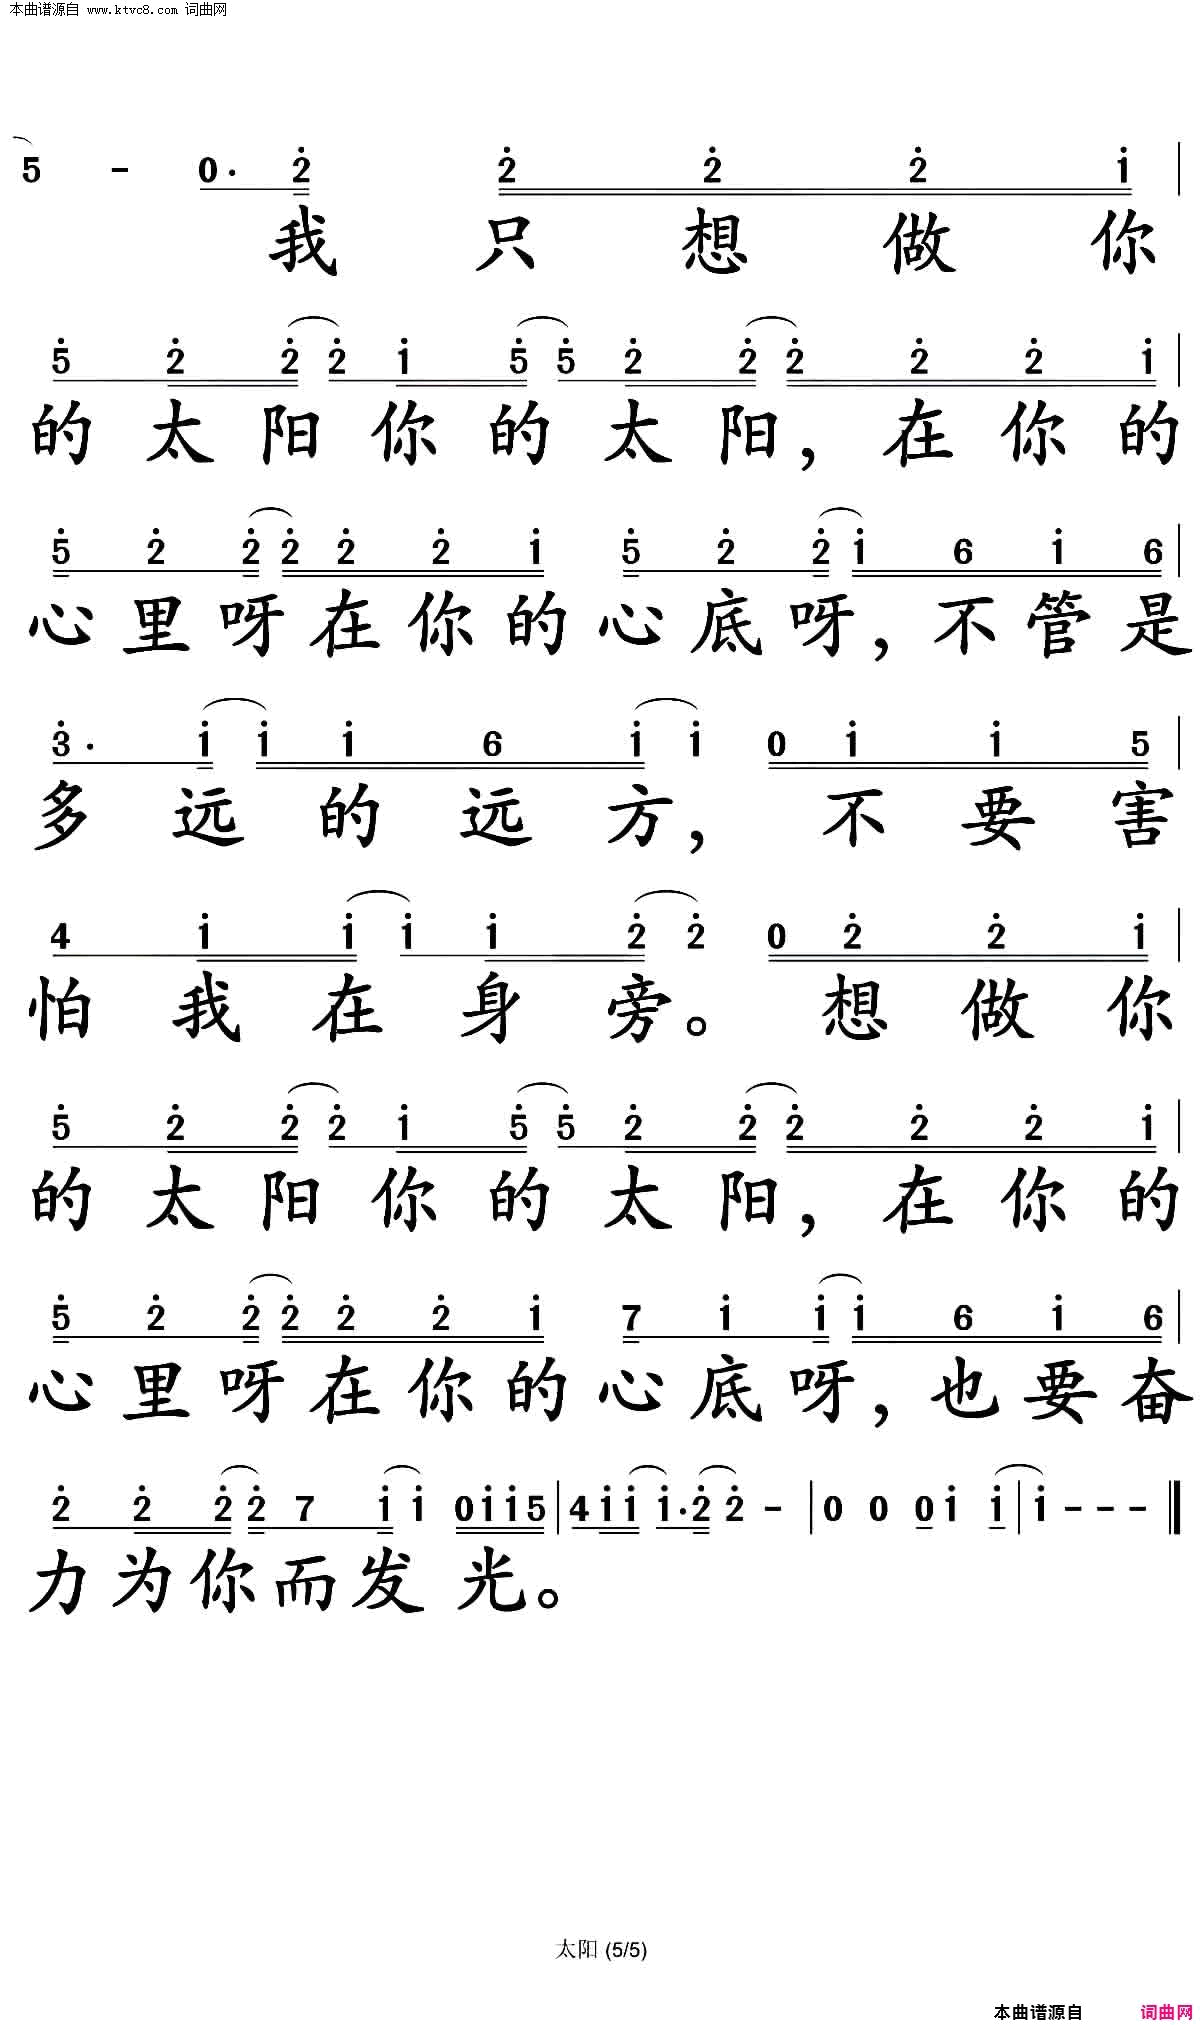 本曲谱源自 www.ktvc8.com 词曲网
5 - 0. 2̇ 2̇ 2̇ 2̇ 1̇ |
我 只 想 做 你
5̇ 2̇ 2̇ 2̇ 1̇ 5̇ 5̇ 2̇ 2̇ 2̇ 2̇ 2̇ 1̇ |
的 太 阳 你 的 太 阳， 在 你 的
5̇ 2̇ 2̇ 2̇ 2̇ 2̇ 1̇ 5̇ 2̇ 2̇ 1̇ 6 1̇ 6 |
心 里 呀 在 你 的 心 底 呀， 不 管 是
3̇. 1̇ 1̇ 1̇ 6 1̇ 1̇ 0 1̇ 1̇ 5 |
多 远 的 远 方， 不 要 害
4 1̇ 1̇ 1̇ 1̇ 2̇ 2̇ 0 2̇ 2̇ 1̇ |
怕 我 在 身 旁。 想 做 你
5̇ 2̇ 2̇ 2̇ 1̇ 5̇ 5̇ 2̇ 2̇ 2̇ 2̇ 2̇ 1̇ |
的 太 阳 你 的 太 阳， 在 你 的
5̇ 2̇ 2̇ 2̇ 2̇ 2̇ 1̇ 7 1̇ 1̇ 1̇ 6 1̇ 6 |
心 里 呀 在 你 的 心 底 呀， 也 要 奋
2̇ 2̇ 2̇ 2̇ 7 1̇ 1̇ 0 1̇ 1̇ 5 | 4 1̇ 1̇ 1̇. 2̇ 2̇ - | 0 0 0 1̇ 1̇ | 1̇ - - - ‖
力 为 你 而 发 光。
太阳 (5/5)
本曲谱源自 词曲网